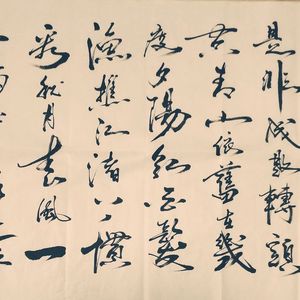 是非成敗轉頭
空青山依舊在幾
度夕陽紅白髮
漁樵江渚上慣
看秋月春風一